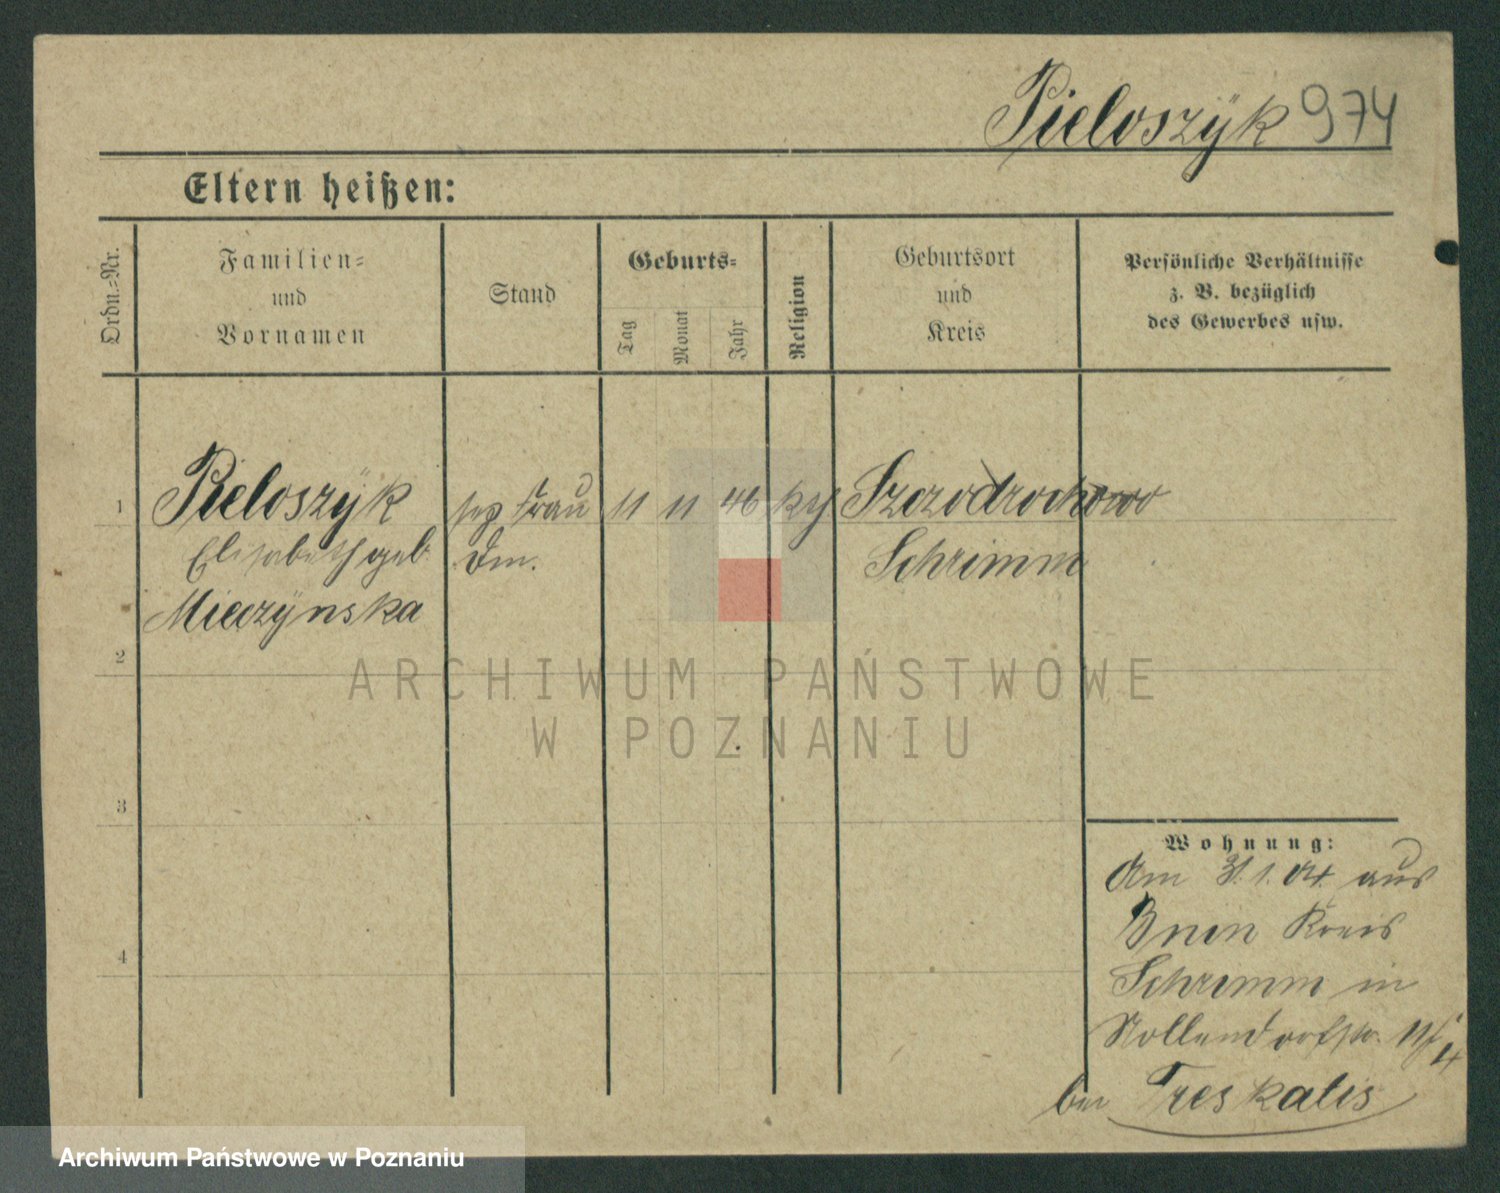 Pieloszÿk 974
Eltern heißen:
Ordn.=Nr.
Familien=
und
Vornamen
Stand
Geburts=
Tag
Monat
Jahr
Religion
Geburtsort
und
Kreis
Persönliche Verhältnisse
z. B. bezüglich
des Gewerbes usw.
1 Pieloszÿk Frau 11 11 46
Elisabeth geb.
Schrimm
Mieczÿnska
2
3
4
Wohnung:
Am 31. 1. 04. aus
Bnin Kreis
Schrimm in
Nollendorfstr.
bei Treskatis
ARCHIWUM PAŃSTWOWE
W POZNANIU
Archiwum Państwowe w Poznaniu